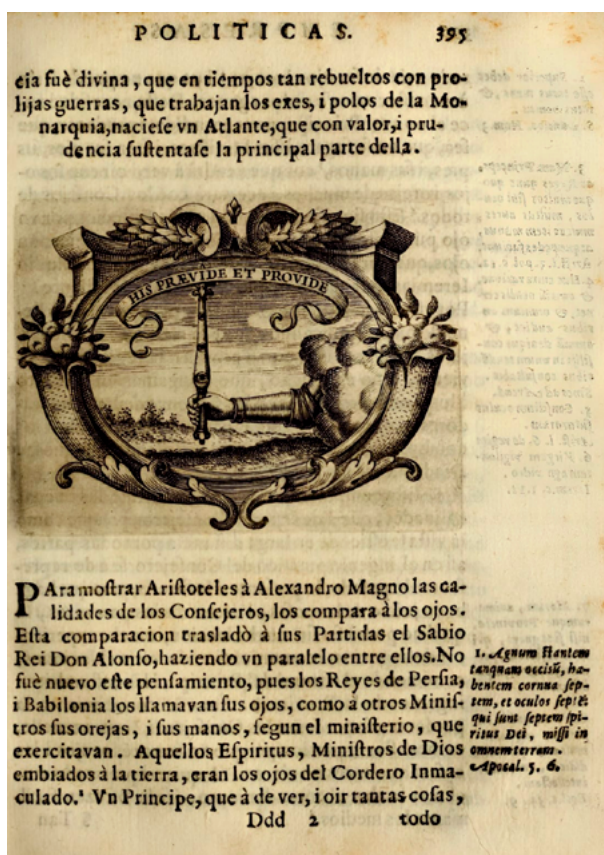 POLITICAS. 395
cia fuè divina, que en tiempos tan rebueltos con pro-
lijas guerras, que trabajan los exes, i polos de la Mo-
narquia, naciese vn Atlante, que con valor, i pru-
dencia sustentase la principal parte della.
HIS PRÆVIDE ET PROVIDE
PAra mostrar Aristoteles à Alexandro Magno las ca-
lidades de los Consejeros, los compara à los ojos.
Esta comparacion trasladò à sus Partidas el Sabio
Rei Don Alonso, haziendo vn paralelo entre ellos. No
fuè nuevo este pensamiento, pues los Reyes de Persia,
i Babilonia los llamavan sus ojos, como à otros Minis-
tros sus orejas, i sus manos, segun el ministerio, que
exercitavan. Aquellos Espiritus, Ministros de Dios
embiados à la tierra, eran los ojos del Cordero Inma-
culado.¹ Vn Principe, que à de ver, i oir tantas cosas,
Ddd 2 todo
1. Agnum stantem
tanquam occisũ, ha-
bentem cornua sep-
tem, et oculos septẽ
qui sunt septem spi-
ritus Dei, missi in
omnem terram.
Apocal. 5. 6.